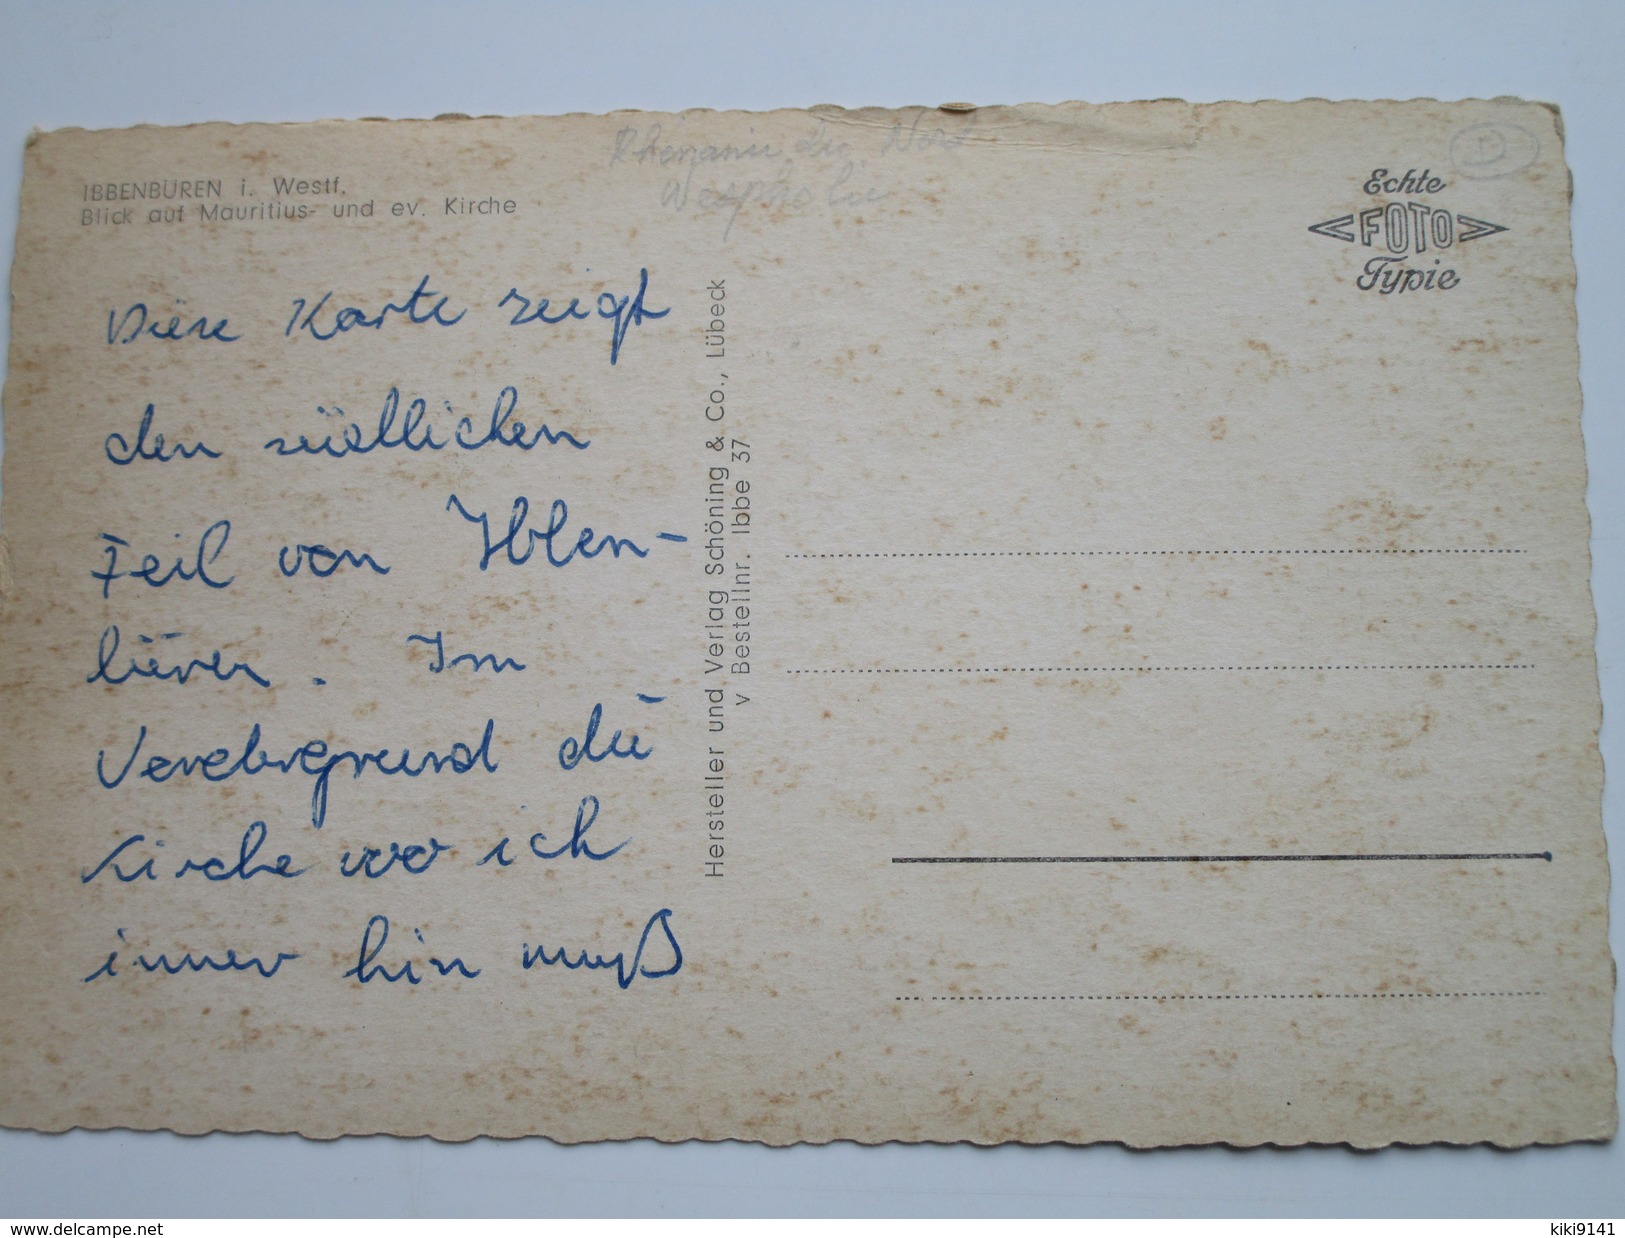 Rhénanie du Nord
Wespholie
D
IBBENBÜREN i. Westf.
Blick auf Mauritius- und ev. Kirche
Echte
FOTO
Typie
Diese Karte zeigt
den südlichen
Teil von Ibben-
büren. Im
Vordergrund die
Kirche wo ich
immer hin muß
Hersteller und Verlag Schöning & Co., Lübeck
v Bestellnr. Ibbe 37
www.delcampe.net
kiki9141